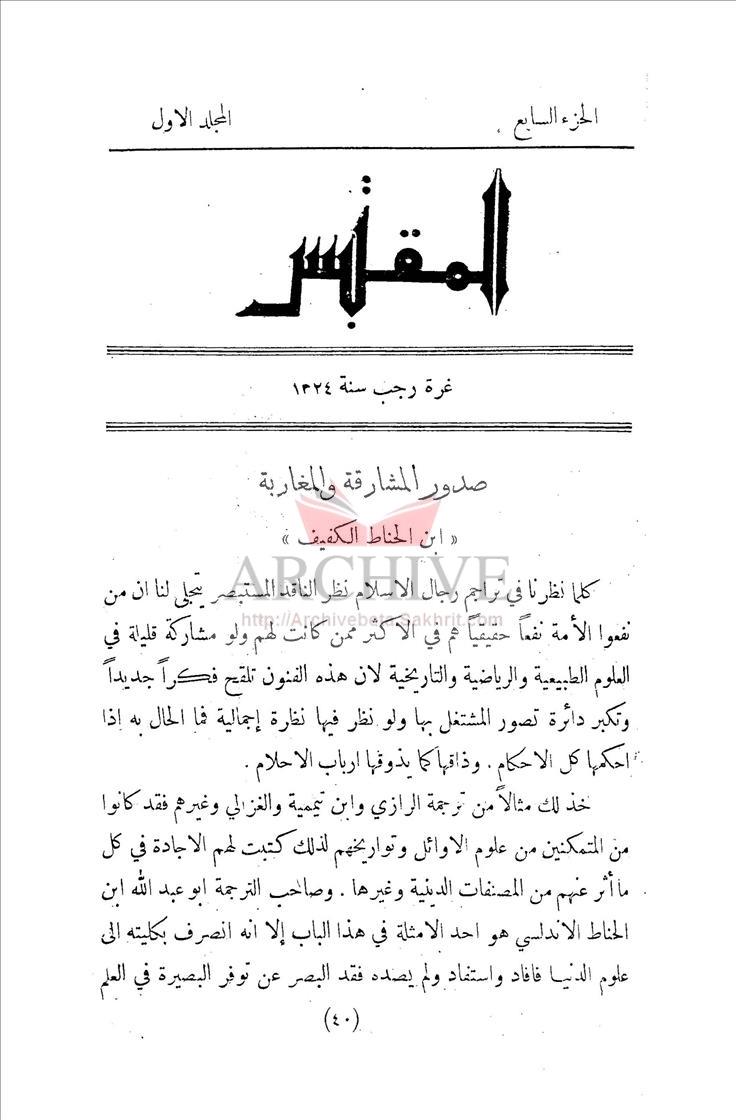 الجزء السابع المجلد الاول
المقتبس
غرة رجب سنة ١٣٢٤
صدور المشارقة والمغاربة
« ابن الحناط الكفيف »
ARCHIVE
كلما نظرنا في تراجم رجال الاسلام نظر الناقد المستبصر يتجلى لنا ان من
http://Archivebeta.Sakhrit.com
نفعوا الأمة نفعاً حقيقياً هم في الاكثر ممن كانت لهم ولو مشاركة قليلة في
العلوم الطبيعية والرياضية والتاريخية لان هذه الفنون تلقح فكراً جديداً
وتكبر دائرة تصور المشتغل بها ولو نظر فيها نظرة إجمالية فما الحال به إذا
احكمها كل الاحكام . وذاقها كما يذوقها ارباب الاحلام .
خذ لك مثالاً من ترجمة الرازي وابن تيمية والغزالي وغيرهم فقد كانوا
من المتمكنين من علوم الاوائل وتواريخهم لذلك كتبت لهم الاجادة في كل
ما أثر عنهم من المصنفات الدينية وغيرها . وصاحب الترجمة ابو عبد الله ابن
الحناط الاندلسي هو احد الامثلة في هذا الباب إلا انه انصرف بكليته الى
علوم الدنيا فافاد واستفاد ولم يصده فقد البصر عن توفر البصيرة في العلم
(٤٠)